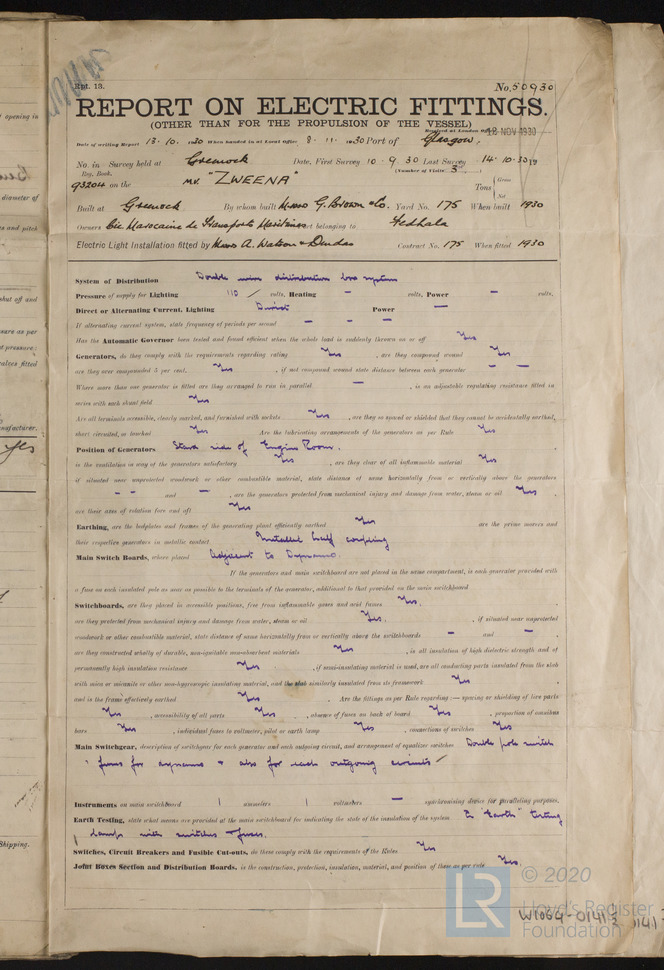 Rpt. 13.
No. 50930
REPORT ON ELECTRIC FITTINGS.
(OTHER THAN FOR THE PROPULSION OF THE VESSEL)
Received at London Office 12 NOV 1930
Date of writing Report 13. 10. 1930 When handed in at Local Office 8. 11. 1930 Port of Glasgow.
No. in Survey held at Greenock Date, First Survey 10. 9. 30 Last Survey 14. 10. 30 19
Reg. Book. (Number of Visits 3)
93204 on the MV. "ZWEENA" Tons { Gross Net
Built at Greenock By whom built Messrs G. Brown & Co. Yard No. 175 When built 1930
Owners Cie Marocaine de Transports Maritimes Port belonging to Fedhala
Electric Light Installation fitted by Messrs A. Watson & Dundas Contract No. 175 When fitted 1930
System of Distribution Double wire distribution box system
Pressure of supply for Lighting 110 volts, Heating - volts, Power - volts.
Direct or Alternating Current, Lighting Direct Power -
If alternating current system, state frequency of periods per second - - -
Has the Automatic Governor been tested and found efficient when the whole load is suddenly thrown on or off Yes
Generators, do they comply with the requirements regarding rating Yes, are they compound wound Yes
are they over compounded 5 per cent. Yes, if not compound wound state distance between each generator - -
Where more than one generator is fitted are they arranged to run in parallel -, is an adjustable regulating resistance fitted in
series with each shunt field Yes
Are all terminals accessible, clearly marked, and furnished with sockets Yes, are they so spaced or shielded that they cannot be accidentally earthed,
short circuited, or touched Yes Are the lubricating arrangements of the generators as per Rule Yes
Position of Generators Starb side of Engine Room.
is the ventilation in way of the generators satisfactory Yes, are they clear of all inflammable material Yes
if situated near unprotected woodwork or other combustible material, state distance of same horizontally from or vertically above the generators
- - and -, are the generators protected from mechanical injury and damage from water, steam or oil Yes,
are their axes of rotation fore and aft Yes
Earthing, are the bedplates and frames of the generating plant efficiently earthed Yes are the prime movers and
their respective generators in metallic contact Metalled half coupling
Main Switch Boards, where placed Adjacent to Dynamo.
If the generators and main switchboard are not placed in the same compartment, is each generator provided with
a fuse on each insulated pole as near as possible to the terminals of the generator, additional to that provided on the main switchboard
Switchboards, are they placed in accessible positions, free from inflammable gases and acid fumes Yes.
are they protected from mechanical injury and damage from water, steam or oil Yes., if situated near unprotected
woodwork or other combustible material, state distance of same horizontally from or vertically above the switchboards - and -,
are they constructed wholly of durable, non-ignitable non-absorbent materials Yes, is all insulation of high dielectric strength and of
permanently high insulation resistance Yes, if semi-insulating material is used, are all conducting parts insulated from the slab
with mica or micanite or other non-hygroscopic insulating material, and the slab similarly insulated from its framework Yes,
and is the frame effectively earthed Yes. Are the fittings as per Rule regarding:— spacing or shielding of live parts
Yes, accessibility of all parts Yes, absence of fuses on back of board Yes, proportion of omnibus
bars Yes, individual fuses to voltmeter, pilot or earth lamp Yes, connections of switches Yes
Main Switchgear, description of switchgear for each generator and each outgoing circuit, and arrangement of equalizer switches Double pole switch
& fuses for dynamo & also for each outgoing circuits
Instruments on main switchboard 1 ammeters 1 voltmeters - synchronising device for paralleling purposes.
Earth Testing, state what means are provided at the main switchboard for indicating the state of the insulation of the system To "Earth" testing
lamps with switches & fuses.
Switches, Circuit Breakers and Fusible Cut-outs, do these comply with the requirements of the Rules Yes
Joint Boxes Section and Distribution Boards, is the construction, protection, insulation, material, and position of these as per rule Yes.
LR
© 2020
Lloyd's Register
Foundation
W1064-0141 1/2